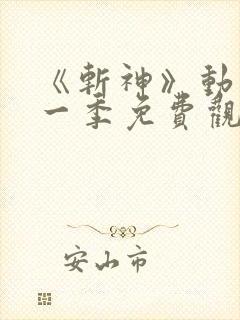 《斬神》動
一季免費觀
安山市